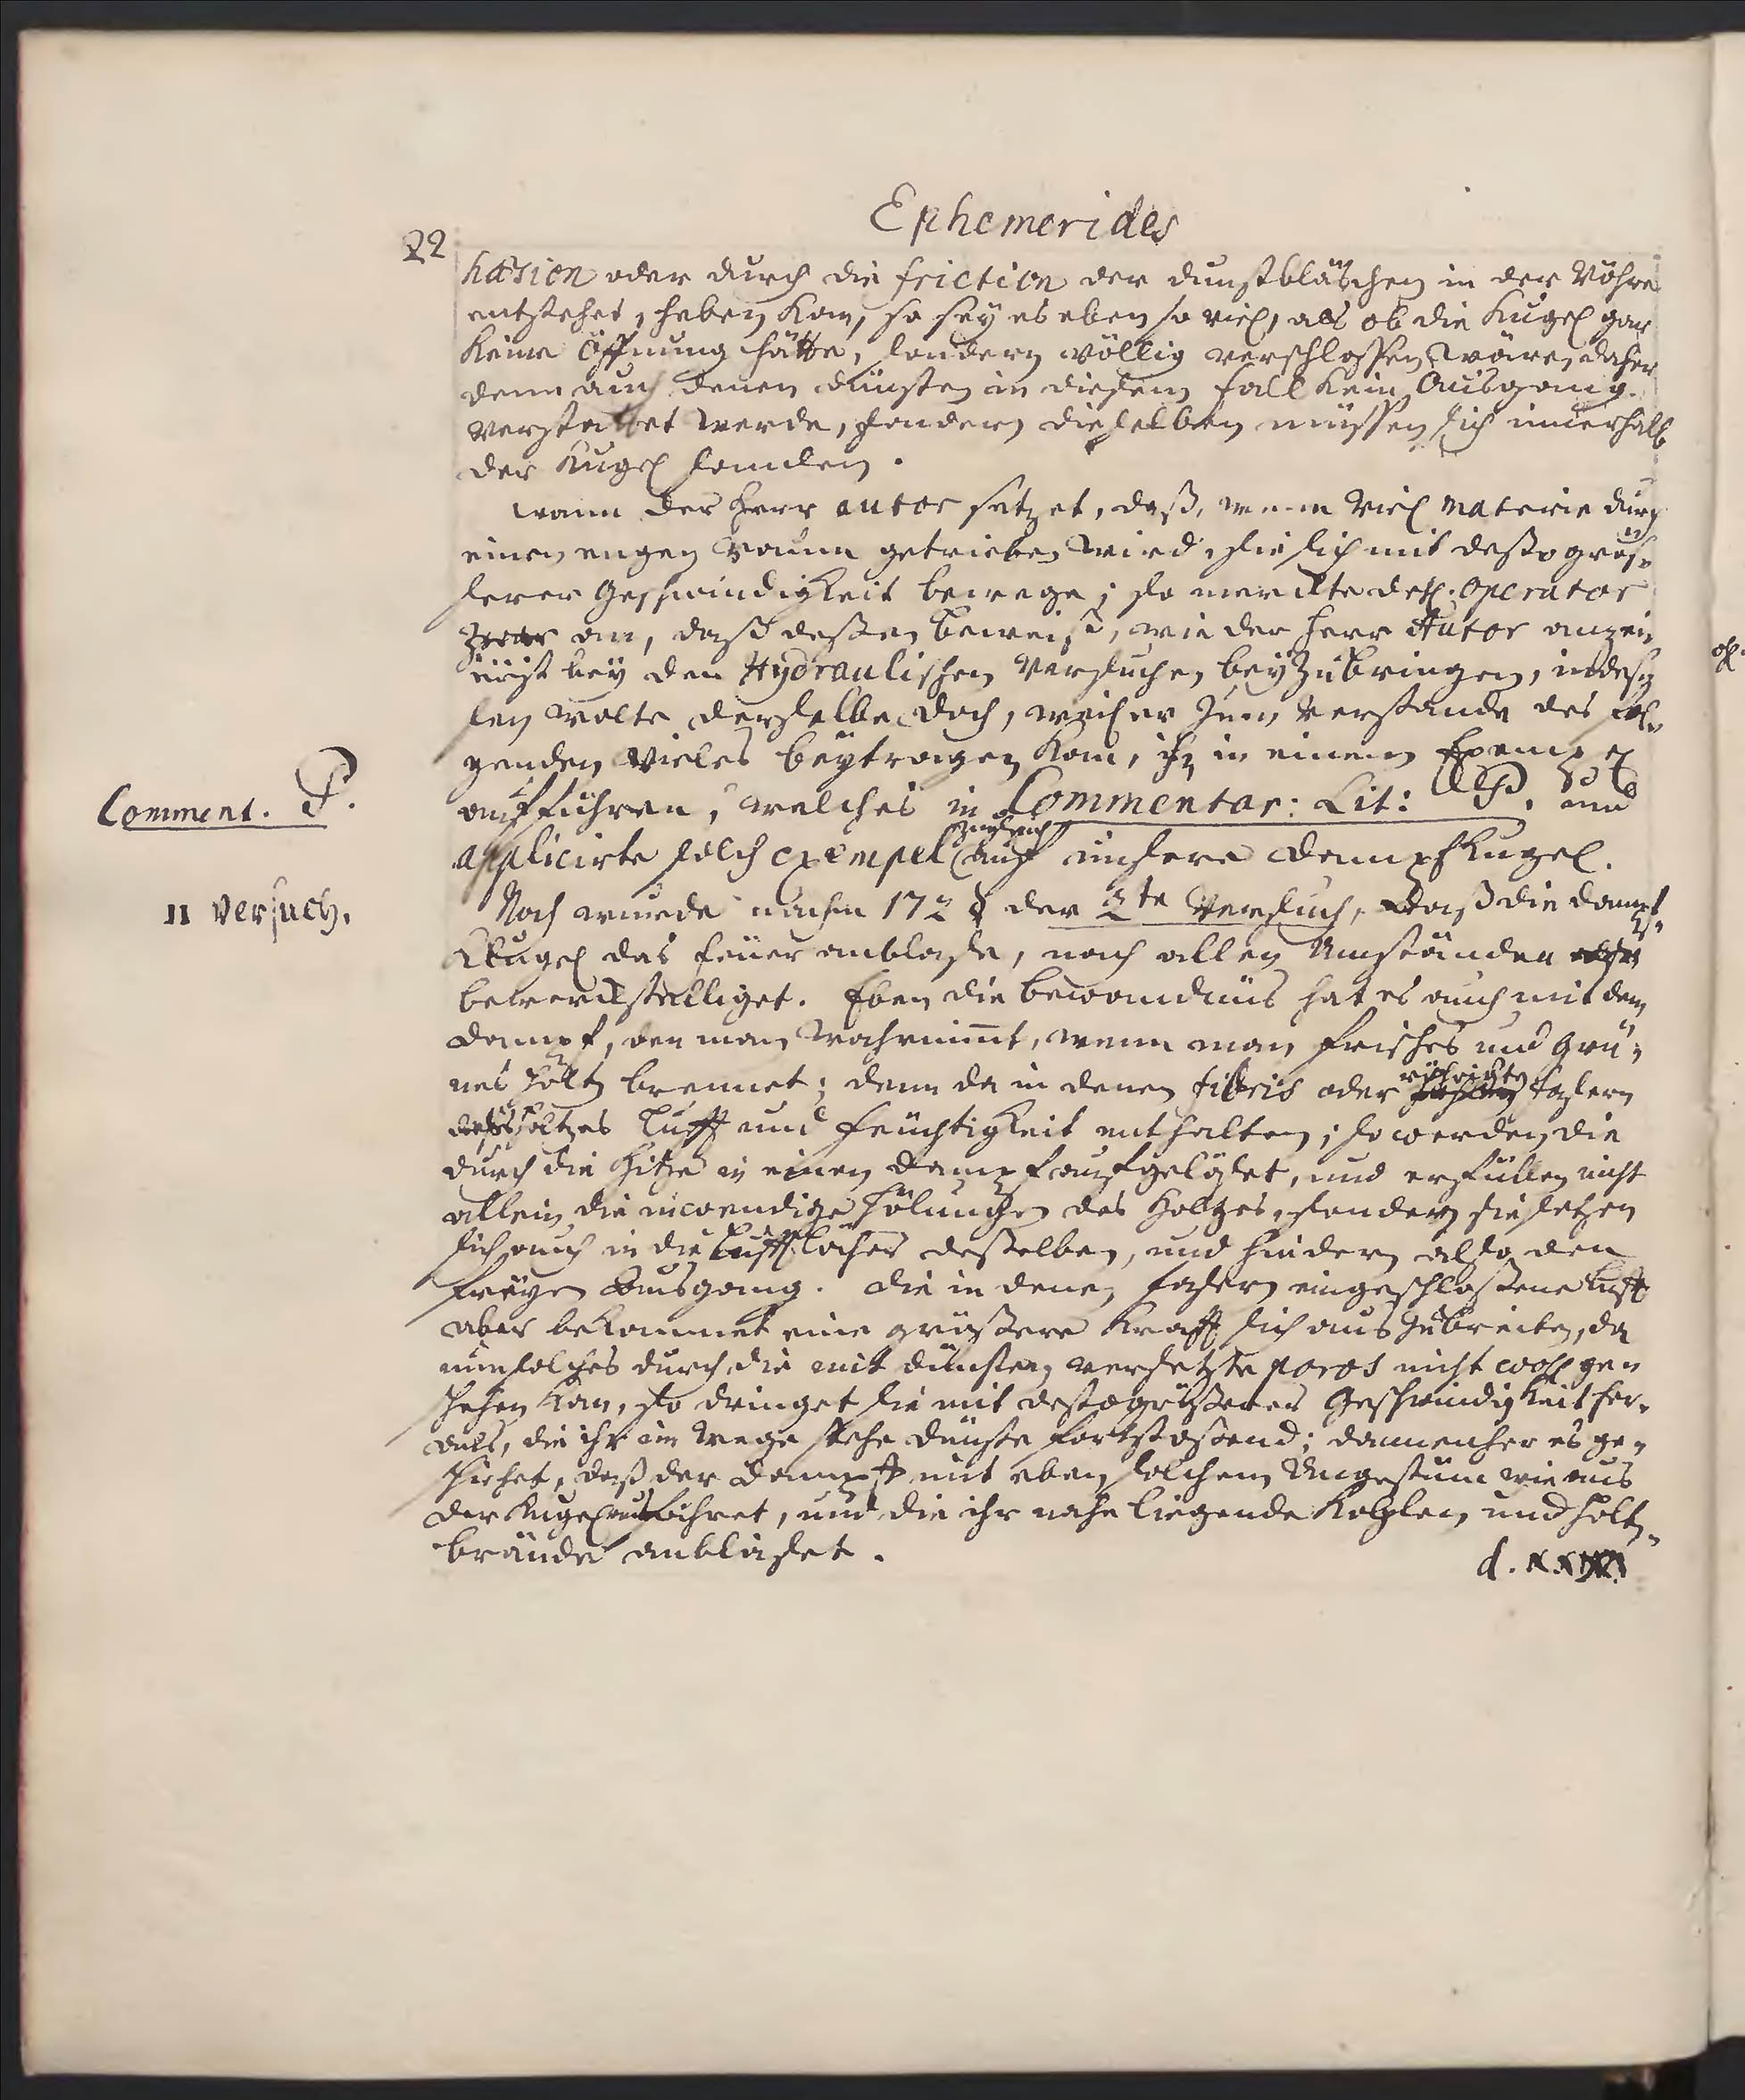 Ephemerides
22
hæsion oder durch die friction der dunstbläschen in der Röhre
entstehet, haben kan, so sey es eben so viel, als ob die Kugel gar
keine Öffnung hätte, sondern völlig verschlossen wäre, daher
denn auch denen dünsten in diesem fall kein Ausgang
verstattet werde, sondern dieselben müssen sich innerhalb
der Kugel samlen.
wann der Herr autor setzet, daß, wenn viel materie durch
einen engen Raum getrieben wird, sie sich mit desto grös-
serer Geschwindigkeit bewege; so merckte der H. operator
zwar an, daß dessen Beweiß, wie der Herr Autor anzei
bey den Hydraulischen Versuchen beyzubringen, indes
sen wolte derselbe doch, weil er zum Verstande des fol-
genden vieles beytragen kan, ihn in einem Exempel
aufführen, welches in Commentar: Lit: P. und
Comment. P.
applicirte solch exempel zugleich auf unsere dampfkugel.
II Versuch.
Noch wurde nachm 172 § der 2te Versuch, daß die dampf-
Kugel das feuer anblase, nach allen Umständen
bewerckstelliget. Eben die bewandnüs hat es auch mit dem
dampf, den man wahrnimmt, wenn man frisches und grü-
nes Holtz brennet; denn da in denen fibris oder röhrichten fasern
des Holtzes Lufft und feuchtigkeit enthalten; so werden die
durch die Hitze in einen dampf aufgelöset, und erfüllen nicht
allein die inwendige Hölungen des Holtzes, sondern sie setzen
sich auch in die Lufftlöcher desselben, und hindern also den
freyen Ausgang. Die in denen fasern eingeschlossene Lufft
aber bekommet eine grössere Krafft sich auszubreiten, da
nun solches durch die mit dünsten versetzte poros nicht wohl ge-
schehen kan, so dringet sie mit desto grösserer Geschwindigkeit her-
aus, die ihr im Wege stehe dünste fortstossend; dannenher es ge-
schiehet, daß der Dampff mit eben solchem Ungestüm wie aus
der Kugel ausfähret, und die ihr nahe liegende Kohlen und Holtz-
brände anbläset.
d.